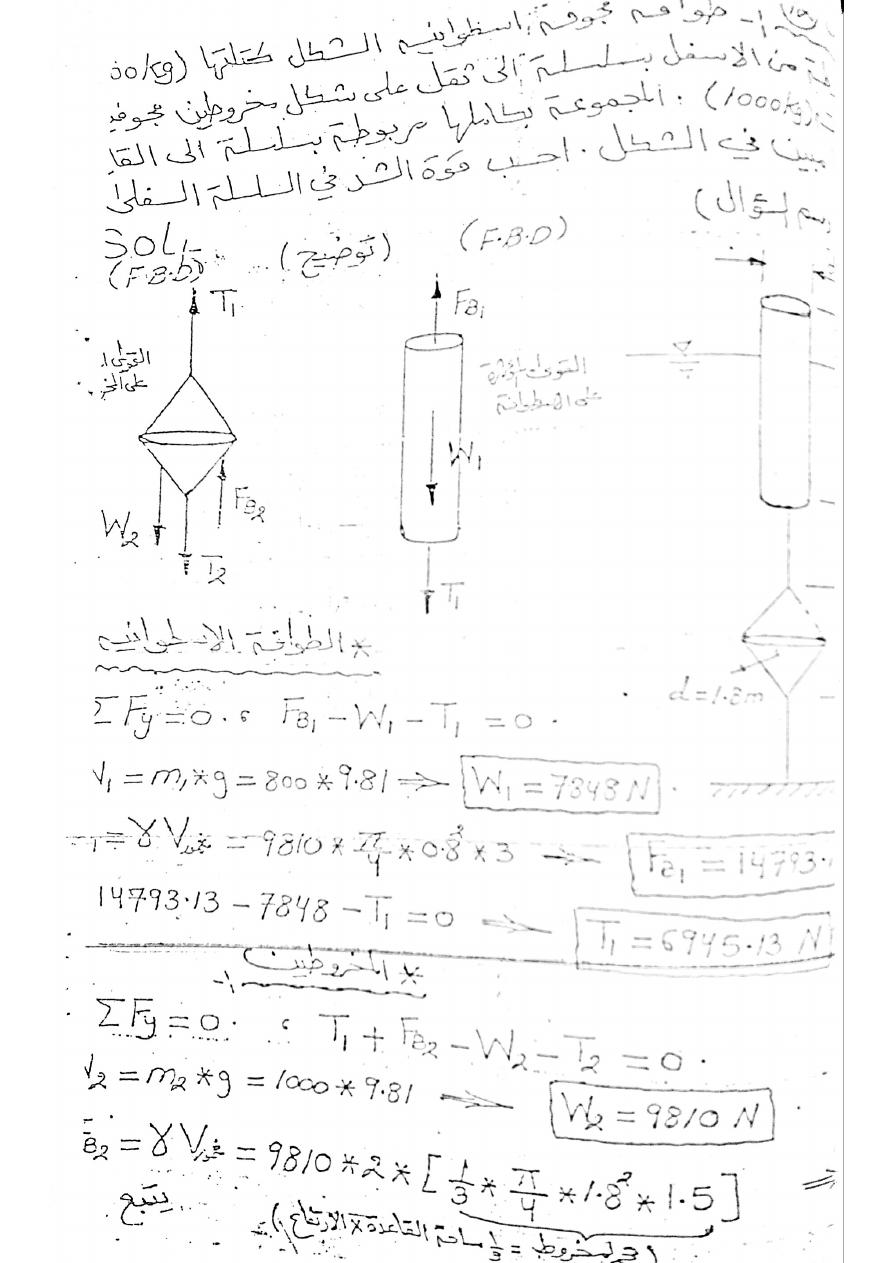 طوافة مجوفة اسطوانية الشكل كتلتها (00kg
من الاسفل بسلسلة إلى ثقل على شكل مخروطين مجوفي
(1000kg) . المجموعة بكاملها مربوطة بسلسلة الى القا
مبين في الشكل . احسب قوة الشد في السلسلة السفلى
رسم السؤال)
SOL:-
(F.B.D) (توضيح) (F.B.D)
T1
FB1
القوى
القوى المؤثرة
على الاسطوانة
W1
FB2
W2
T2
T1
* الطوافة الاسطوانية
d=1.8m
ΣFy=0 . ، FB1 - W1 - T1 = 0 .
V1 = m1*g = 800*9.81 ⇒ W1 = 7848 N .
= γ Vمغمور = 9810 * π/4 * 0.8² * 3 → FB1 = 14793.1
14793.13 - 7848 - T1 = 0 ⇒ T1 = 6945.13 N
* المخروطين :-
ΣFy=0 . ، T1 + FB2 - W2 - T2 = 0 .
V2 = m2*g = 1000*9.81 ⇒ W2 = 9810 N
B2 = γ Vمغمور = 9810 * 2 * [1/3 * π/4 * 1.8² * 1.5] ⇒
يتبع
(حجم المخروط = 1/3 مساحة القاعدة × الارتفاع)